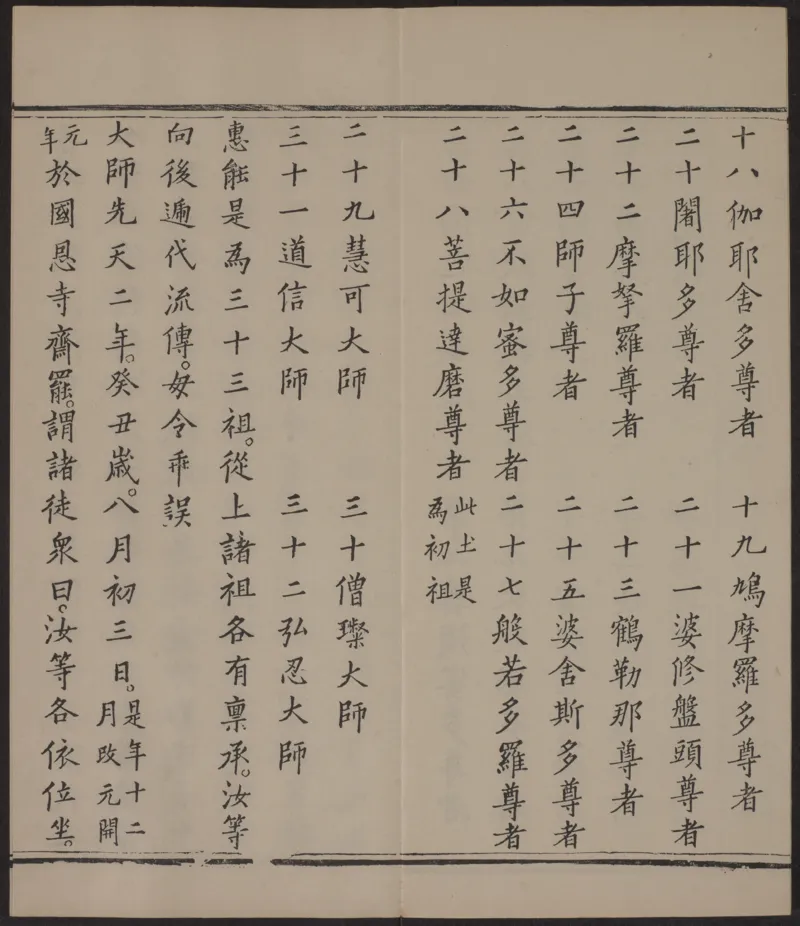 十八伽耶舍多尊者　十九鳩摩羅多尊者
二十闍耶多尊者　二十一婆修盤頭尊者
二十二摩拏羅尊者　二十三鶴勒那尊者
二十四師子尊者　二十五婆舍斯多尊者
二十六不如蜜多尊者　二十七般若多羅尊者
二十八菩提達磨尊者　此土是
為初祖
二十九慧可大師　三十僧璨大師
三十一道信大師　三十二弘忍大師
惠能是為三十三祖。從上諸祖各有稟承。汝等
向後遞代流傳。毋令乖誤
大師先天二年。癸丑歲。八月初三日。是年十二
月改元開
元
年於國恩寺齋罷。謂諸徒眾曰。汝等各依位坐。